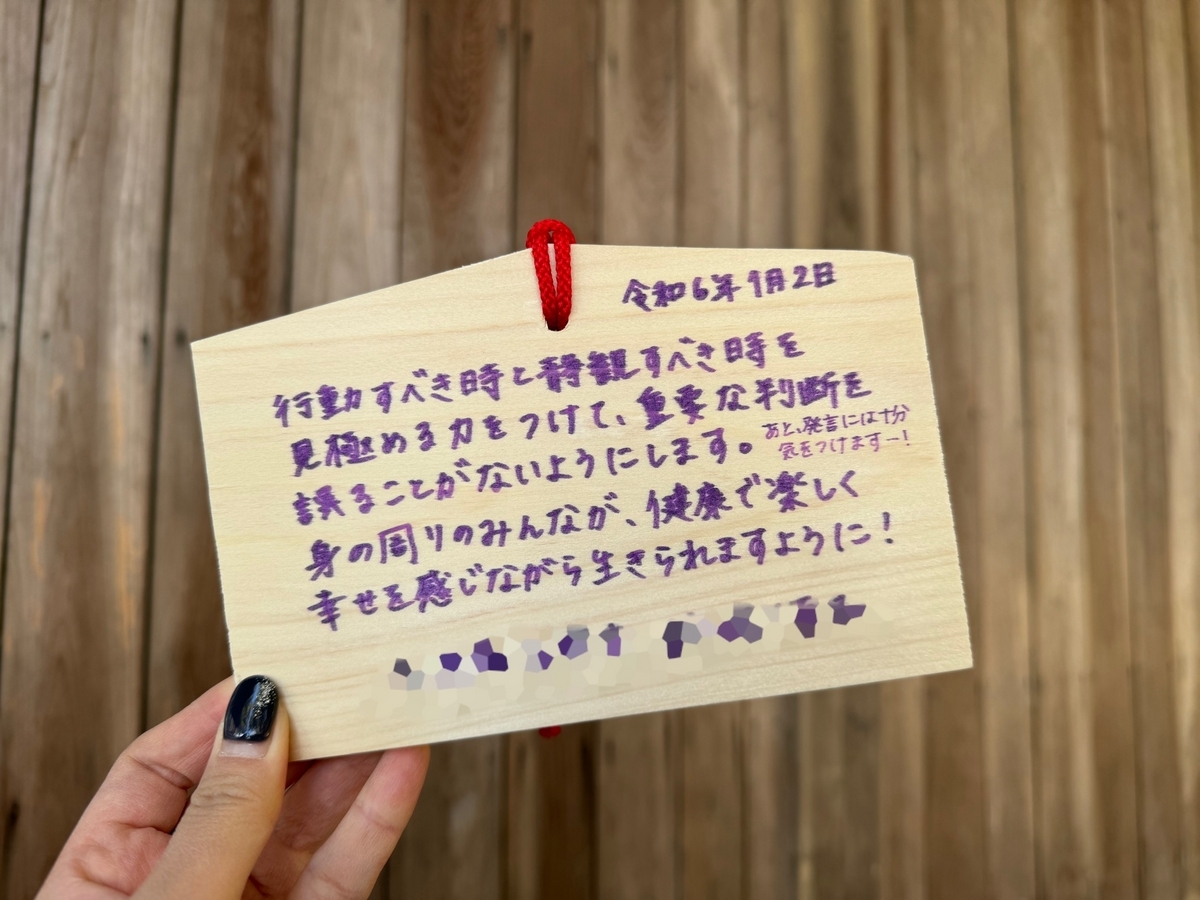 令和6年1月2日
行動すべき時と静観すべき時を
見極める力をつけて、重要な判断を
誤ることがないようにします。
あと、発言には十分
気をつけますー!
身の周りのみんなが、健康で楽しく
幸せを感じながら生きられますように!